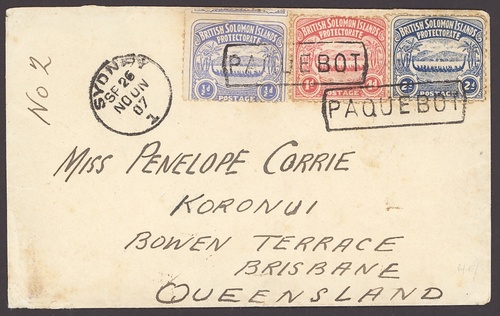 No 2
SYDNEY
SP 26
NOON
07
1
BRITISH SOLOMON ISLANDS
PROTECTORATE
½d ½d
POSTAGE
BRITISH SOLOMON ISLANDS
PROTECTORATE
1d 1d
POSTAGE
BRITISH SOLOMON ISLANDS
PROTECTORATE
2d 2d
POSTAGE
PAQUEBOT
PAQUEBOT
MISS PENELOPE CORRIE
KORONUI
BOWEN TERRACE
BRISBANE
QUEENSLAND